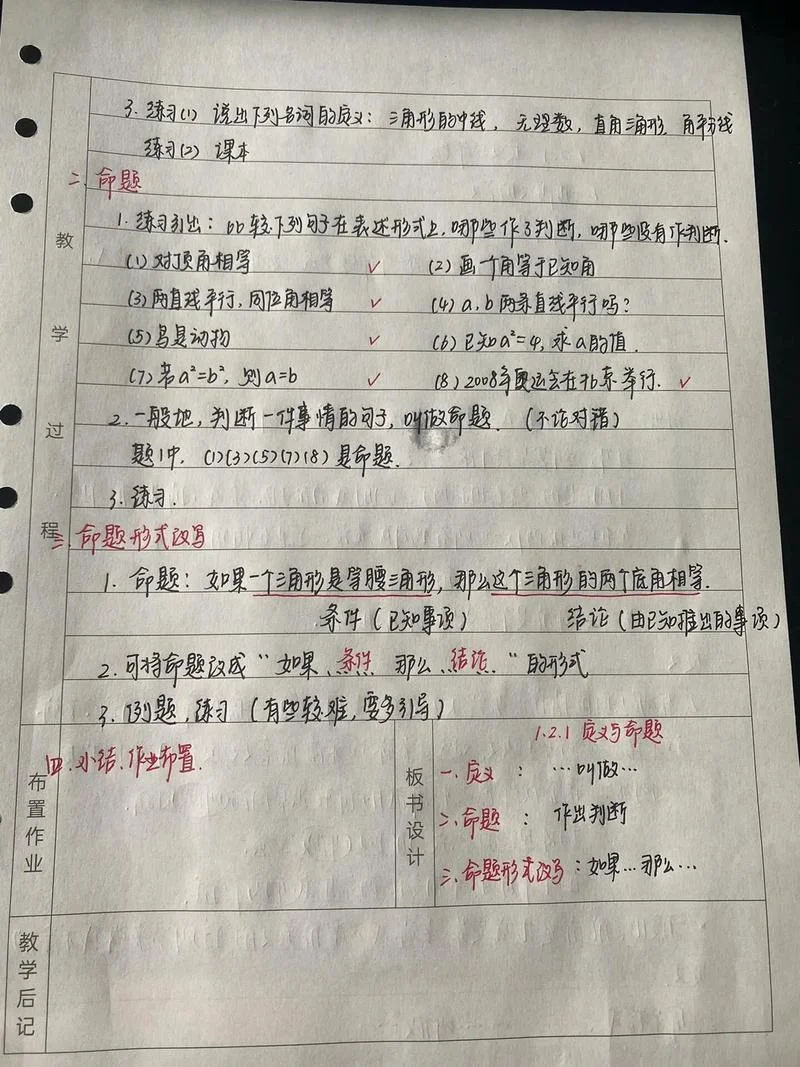 3. 练习(1) 说出下列名词的定义: 三角形的中线, 无理数, 直角三角形, 角平分线
练习(2) 课本
二、命题
1. 练习引出: 比较下列句子在表述形式上, 哪些作了判断, 哪些没有作判断.
(1) 对顶角相等 ✓ (2) 画一个角等于已知角
(3) 两直线平行, 同位角相等 ✓ (4) a, b两条直线平行吗?
(5) 鸟是动物 ✓ (6) 已知a²=4, 求a的值.
(7) 若a²=b², 则a=b ✓ (8) 2008年奥运会在北京举行. ✓
2. 一般地, 判断一件事情的句子, 叫做命题. (不论对错)
题1中, (1)(3)(5)(7)(8)是命题.
3. 练习.
三、命题形式改写
1. 命题: 如果一个三角形是等腰三角形, 那么这个三角形的两个底角相等.
条件 (已知事项) 结论 (由已知推出的事项)
2. 可将命题改成“如果 条件 那么 结论 ”的形式
3. 例题, 练习 (有些较难, 要多引导)
教学过程
四、小结、作业布置.
布置作业
板书设计
1.2.1 定义与命题
一、定义 : …叫做…
二、命题 : 作出判断
三、命题形式改写 : 如果…那么…
教学后记